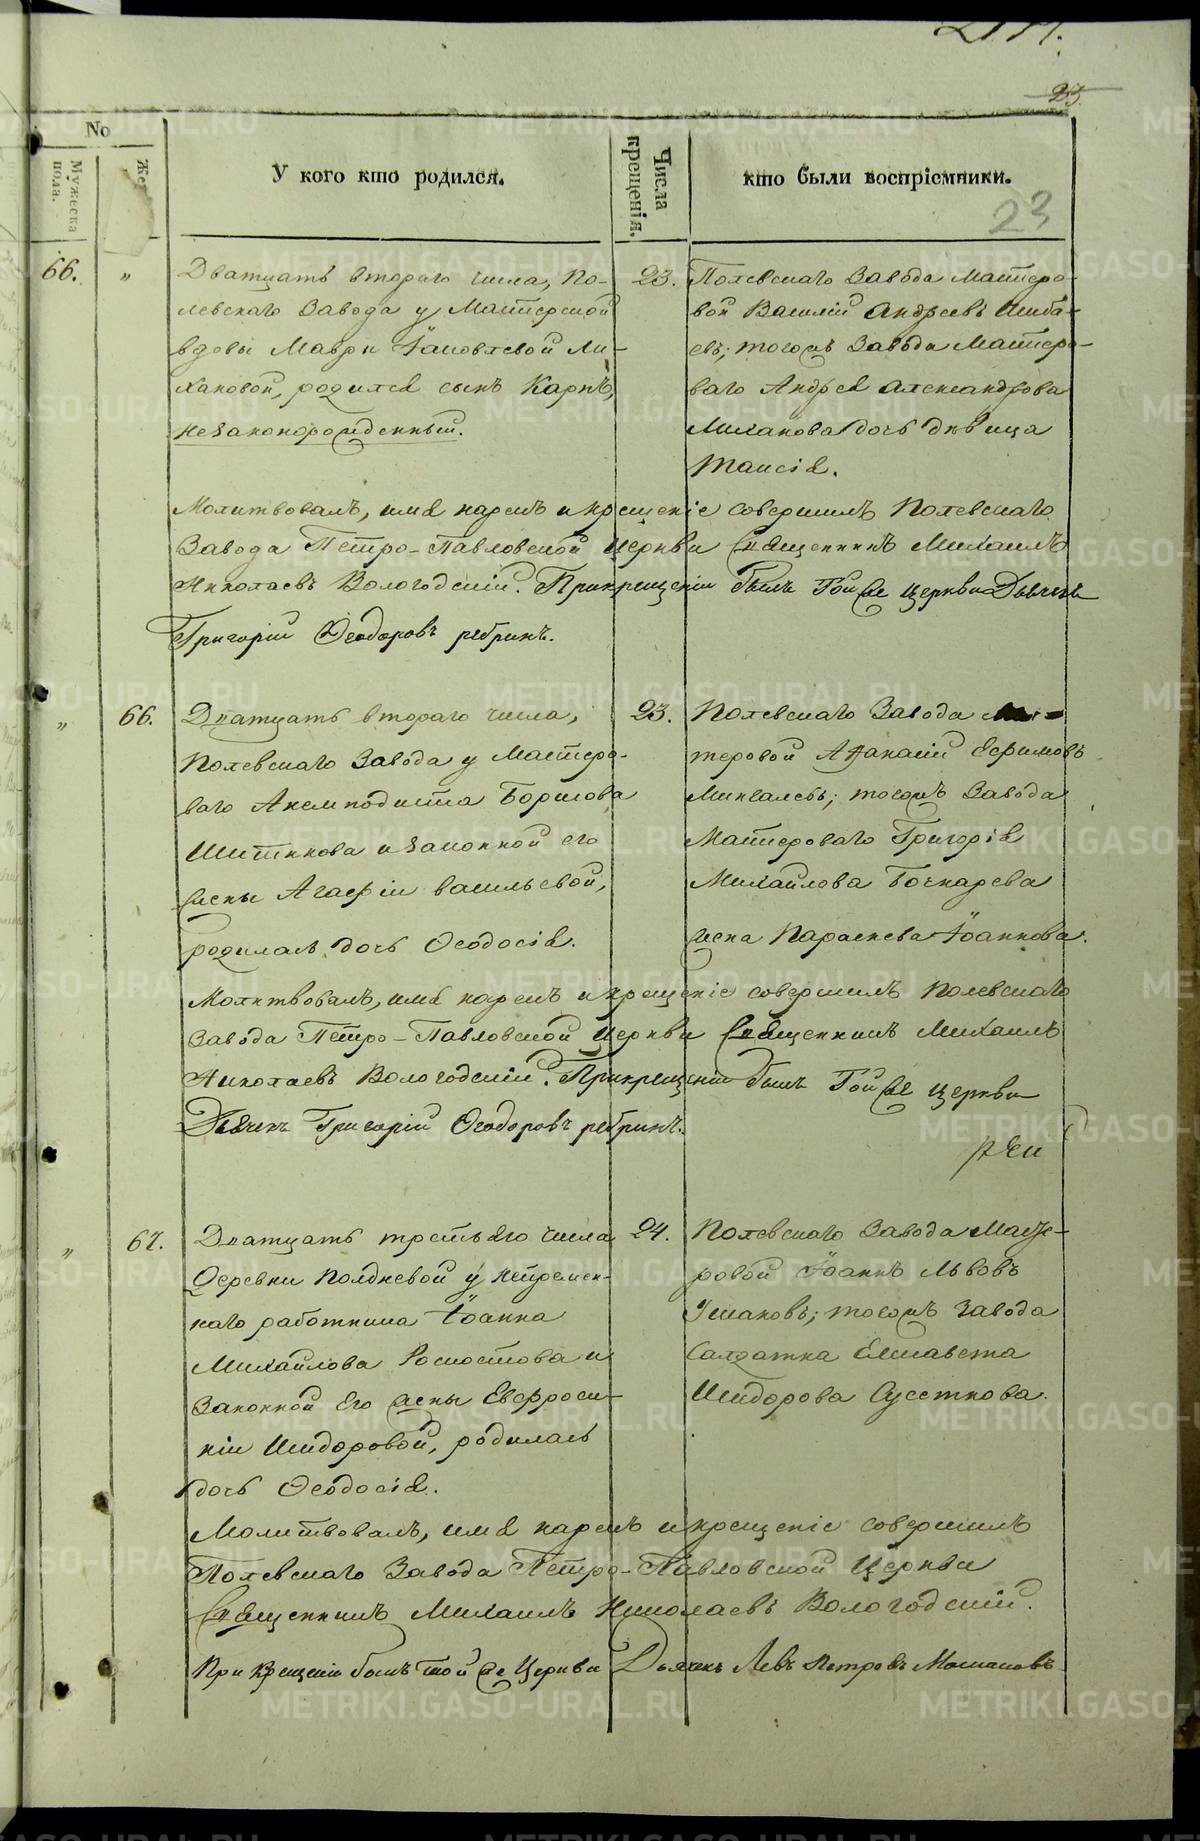 23.
No
Мужеска пола.
Же
У кого кто родился.
Числа крещенія.
кто были воспріемники.
23
66.
„
Дватцать втораго числа, По-
левскаго Завода у Мастерской
вдовы Мавры Іаковлевой Ли-
хановой, родился сынъ Карпъ,
незаконорожденный.
23.
Полевскаго Завода Мастеро-
вой Василій Андреевъ
тогожъ Завода Мастеро-
ваго Андрея Александрова
Лиханова дочь дѣвица
Таисія.
Молитвовалъ, имя нарекъ и крещеніе совершилъ Полевскаго
Завода Петро-Павловской церкви Священникъ Михаилъ
Николаевъ Вологодскій. При крещеніи былъ Той же церкви Дьячекъ
Григорій Ѳеодоровъ
„
66.
Дватцать втораго числа,
Полевскаго Завода у Мастеро-
ваго Анемподиста Борисова
Шитикова и законной его
жены Агафіи Васильевой,
родилась дочь Ѳеодосія.
23.
Полевскаго Завода
теровой Афанасій Ефимовъ
тогожъ Завода
Мастероваго Григорія
Михайлова Бочкарева
жена Параскева Іоаннова.
Молитвовалъ, имя нарекъ и крещеніе совершилъ Полевскаго
Завода Петро-Павловской церкви Священникъ Михаилъ
Николаевъ Вологодскій. При крещеніи былъ Той же церкви
Дьячекъ Григорій Ѳеодоровъ
„
67.
Дватцать третьяго числа
Деревни Полдневой у непремен-
наго работника Іоанна
Михайлова и
Законной Его жены Евфроси-
ніи Исидоровой, родилась
дочь Ѳеодосія.
24.
Полевскаго Завода Масте-
ровой Іоаннъ Львовъ
Ушаковъ; тогожъ Завода
Салдатка Елисавета
Исидорова
Молитвовалъ, имя нарекъ и крещеніе совершилъ
Полевскаго Завода Петро-Павловской Церкви
Священникъ Михаилъ Николаевъ Вологодскій.
При крещеніи былъ той же Церкви Дьячекъ Левъ Петровъ
METRIKI.GASO-URAL.RU